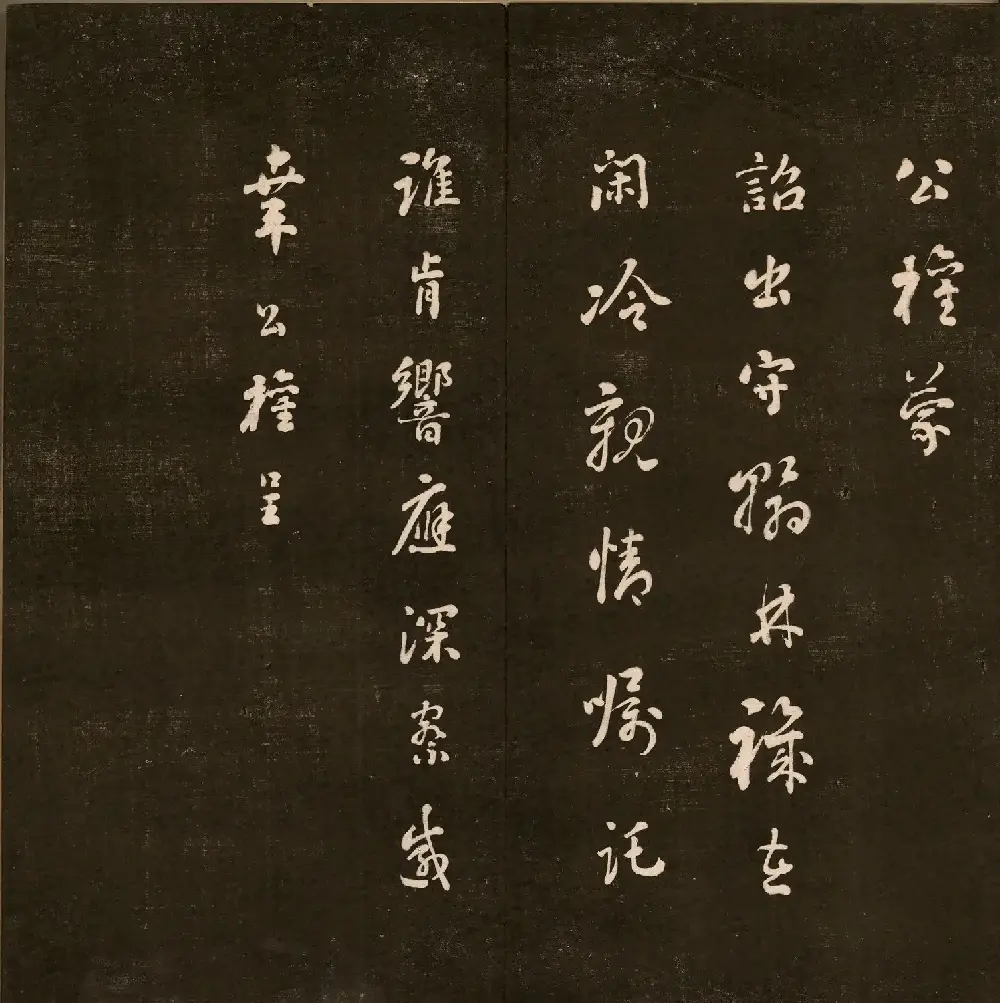 公權蒙
詔出守翰林職在
閑冷親情囑託
誰肯響應深察感
幸公權呈